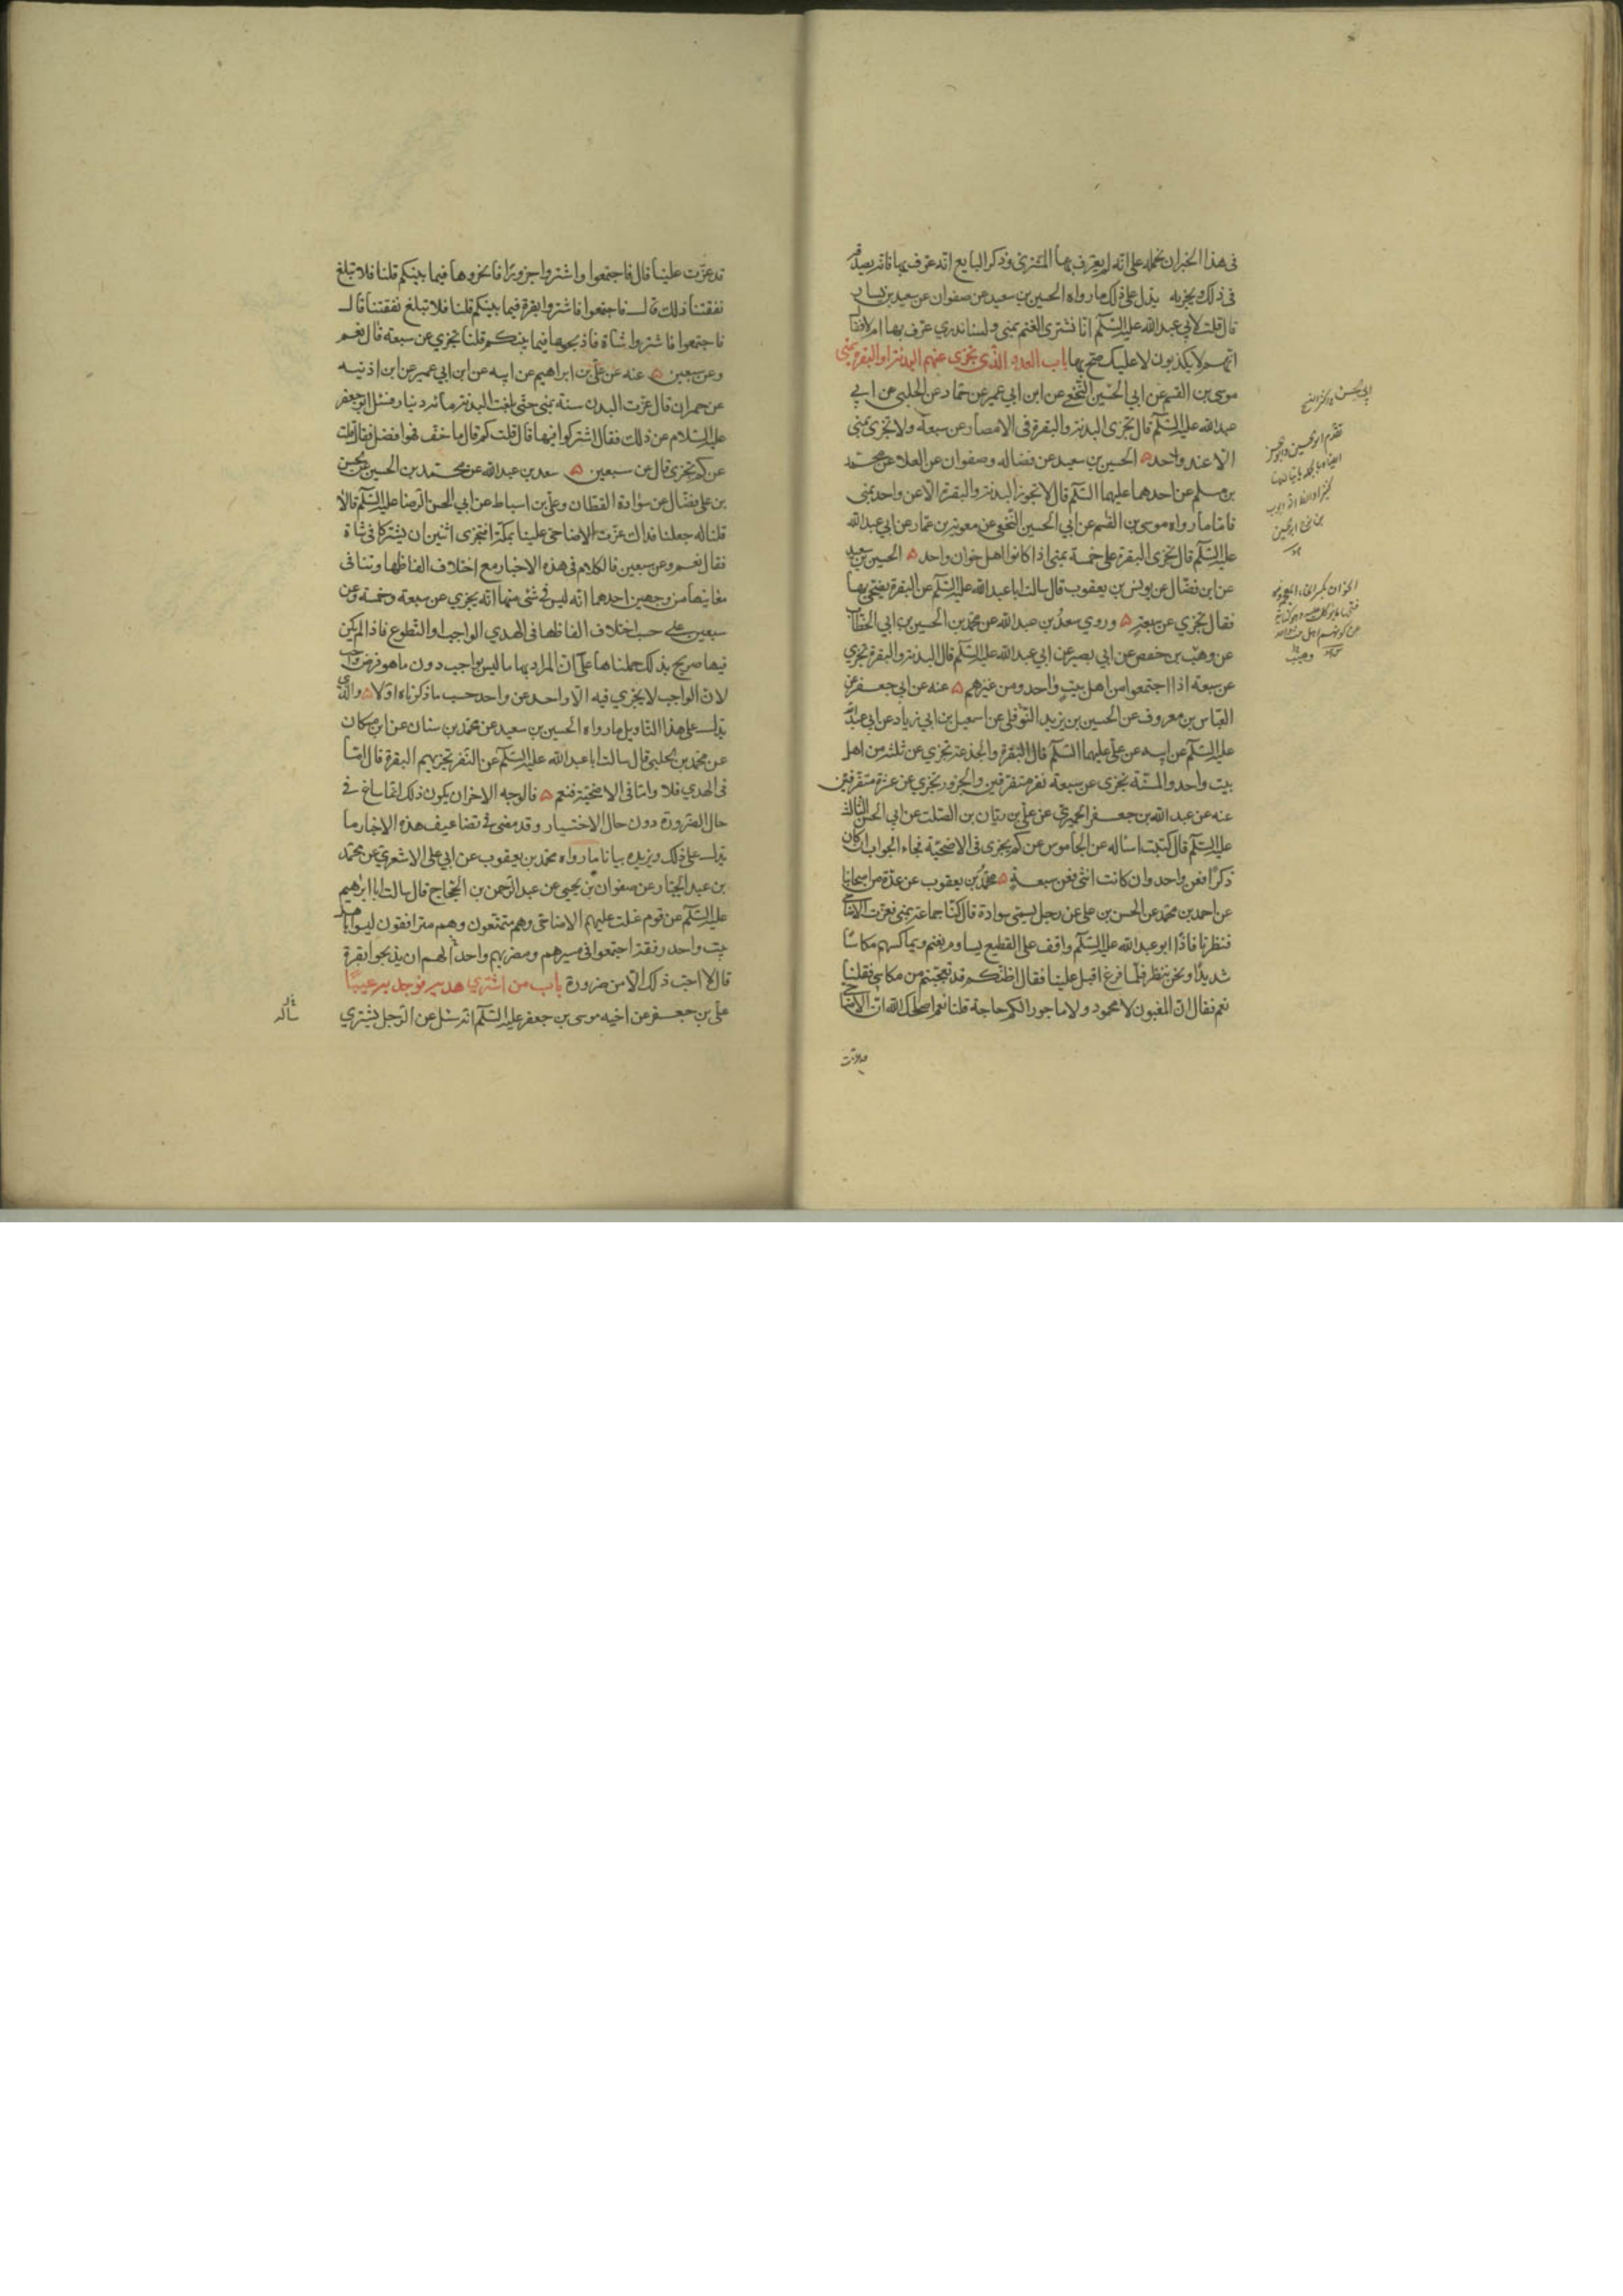 فى هذا الخبران نحمله على انّه لم يعرف بها المشترى وذكر البايع انه عرف بها فانه يصدقه
فى ذلك ويجزيه يدل على ذلك ما رواه الحسين بن سعيد عن صفوان عن سعيد بن يسار
قال قلت لابي عبدالله عليه السّلم انا نشترى الغنم بمنى ولسنا ندرى عرّف بها ام لا فقال
انهم لا يكذبون لا عليك ضح بها باب العدد الذى تجزى عنهم البدنة او البقرة بمنى
موسى بن القسم عن ابي الحسين النخعى عن ابن ابي عمير عن حماد عن الحلبى عن ابي
عبدالله عليه السّلم قال تجزى البدنة والبقرة فى الامصار عن سبعة ولا تجزى بمنى
الا عن واحد الحسين بن سعيد عن فضاله وصفوان عن العلا عن محمّد
بن مسلم عن احدهما عليهما السّلم قال لا تجوز البدنة والبقرة الا عن واحد بمنى
فامّا ما رواه موسى بن القسم عن ابي الحسين النخعى عن معوية بن عمار عن ابي عبدالله
عليه السّلم قال تجزى البقرة على خمسة بمنى اذا كانوا اهل خوان واحد الحسين بن سعيد
عن ابن فضّال عن يونس بن يعقوب قال سالت ابا عبدالله عليه السّلم عن البقرة يضحّى بها
فقال تجزي عن سبعة وروي سعد بن عبدالله عن محمّد بن الحسين بن ابي الخطاب
عن وهيب بن حفص عن ابي بصير عن ابي عبدالله عليه السّلم قال البدنة والبقرة تجزي
عن سبعة اذا اجتمعوا من اهل بيت واحد ومن غيرهم عنه عن ابي جعفر عن
العبّاس بن معروف عن الحسين بن يزيد النوفلى عن اسمعيل بن ابي زياد عن ابي عبدالله
عليه السّلم عن ابيه عن علىّ عليهما السّلم قال البقرة والجذعة تجزي عن ثلثة من اهل
بيت واحد والمسنّة تجزى عن سبعة نفر متفرقين والجزور تجزي عن عشرة متفرقين
عنه عن عبد الله بن جعفر الحميرىّ عن علىّ بن ريّان بن الصّلت عن ابي الحسن الثالث
عليه السّلم قال كتبت اساله عن الجاموس عن كم يجزى فى الاضحيّة فجاء الجواب ان كان
ذكرًا فعن واحد وان كانت انثى فعن سبعة محمّد بن يعقوب عن عدّة من اصحابنا
عن احمد بن محمّد عن الحسن بن على عن رجل يسمّى سوادة قال كنّا جماعة بمنى فعزّت الاضاحى
فنظرنا فاذا ابو عبدالله عليه السّلم واقف على القطيع يساوم بغنم ويماكسهم مكاسًا
شديدًا ونحن ننظر فلمّا فرغ اقبل علينا فقال اظنّكم قد تعجّبتم من مكاسي فقلنا
نعم فقال انّ المغبون لا محمود ولا ماجور الكم حاجة قلنا نعم اصلحك الله ان الاضاحى
قد عزّت
قد عزّت علينا قال فاجتمعوا واشتروا جزورًا فانحروها فيما بينكم قلنا فلا تبلغ
نفقتنا ذلك قال فاجتمعوا فاشتروا بقرة فيما بينكم قلنا فلا تبلغ نفقتنا قال
فاجتمعوا فاشتروا شاة فاذبحوها فيما بينكم قلنا تجزي عن سبعة قال نعم
وعن سبعين عنه عن علىّ بن ابراهيم عن ابيه عن ابن ابي عمير عن ابن اذينه
عن حمران قال عزّت البدن سنة بمنى حتّى بلغت البدنة مائة دينار فسئل ابو جعفر
عليه السّلام عن ذلك فقال اشتركوا فيها قال قلت كم قال ما خف فهو افضل فقال قلت
عن كم تجزى قال عن سبعين سعد بن عبدالله عن محمّد بن الحسين عن الحسن
بن على فضّال عن سوادة القطان وعلىّ بن اسباط عن ابي الحسن الرضا عليه السّلم قالا
قلنا له جعلنا فداك عزّت الاضاحى علينا بمكّة افتجزى اثنين ان يشتركا فى شاة
فقال نعم وعن سبعين فالكلام فى هذه الاخبار مع اختلاف الفاظها وتنافى
معانيها من وجهين احدهما انّه ليس فى شئ منها انّه يجزي عن سبعة وخمسة وعن
سبعين على حسب اختلاف الفاظها فى الهدي الواجب او التطوع فاذا لم يكن
فيها صريح بذلك حملناها على ان المراد بها ما ليس بواجب دون ما هو فرض واجب
لان الواجب لا يجزي فيه الا واحد عن واحد حسب ما ذكرناه اولا والذى
يدل على هذا التاويل ما رواه الحسين بن سعيد عن محمّد بن سنان عن ابن مسكان
عن محمّد بن الحلبي قال سالت ابا عبد الله عليه السّلم عن النّفر تجزيهم البقرة قال امّا
فى الهدي فلا وامّا فى الاضحيّة فنعم فالوجه الاخر ان يكون ذلك انّما ساغ فى
حال الضّرورة دون حال الاختيار وقد مضى فى تضاعيف هذه الاخبار ما
يدل على ذلك ويزيده بيانا ما رواه محمّد بن يعقوب عن ابي على الاشعرىّ عن محمّد
بن عبد الجبّار عن صفوان بن يحيى عن عبد الرحمن بن الحجّاج قال سالت ابا ابراهيم
عليه السّلم عن قوم غلت عليهم الاضاحى وهم متمتّعون وهم مترافقون ليسوا باهل
بيت واحد رفقة اجتمعوا فى مسيرهم ومضربهم واحد الهم ان يذبحوا بقرة
قال لا احبّ ذلك الا من ضرورة باب من اشترى هديه فوجد به عيبًا
علىّ بن جعفر عن اخيه موسى بن جعفر عليه السّلم انه سئل عن الرّجل يشترى